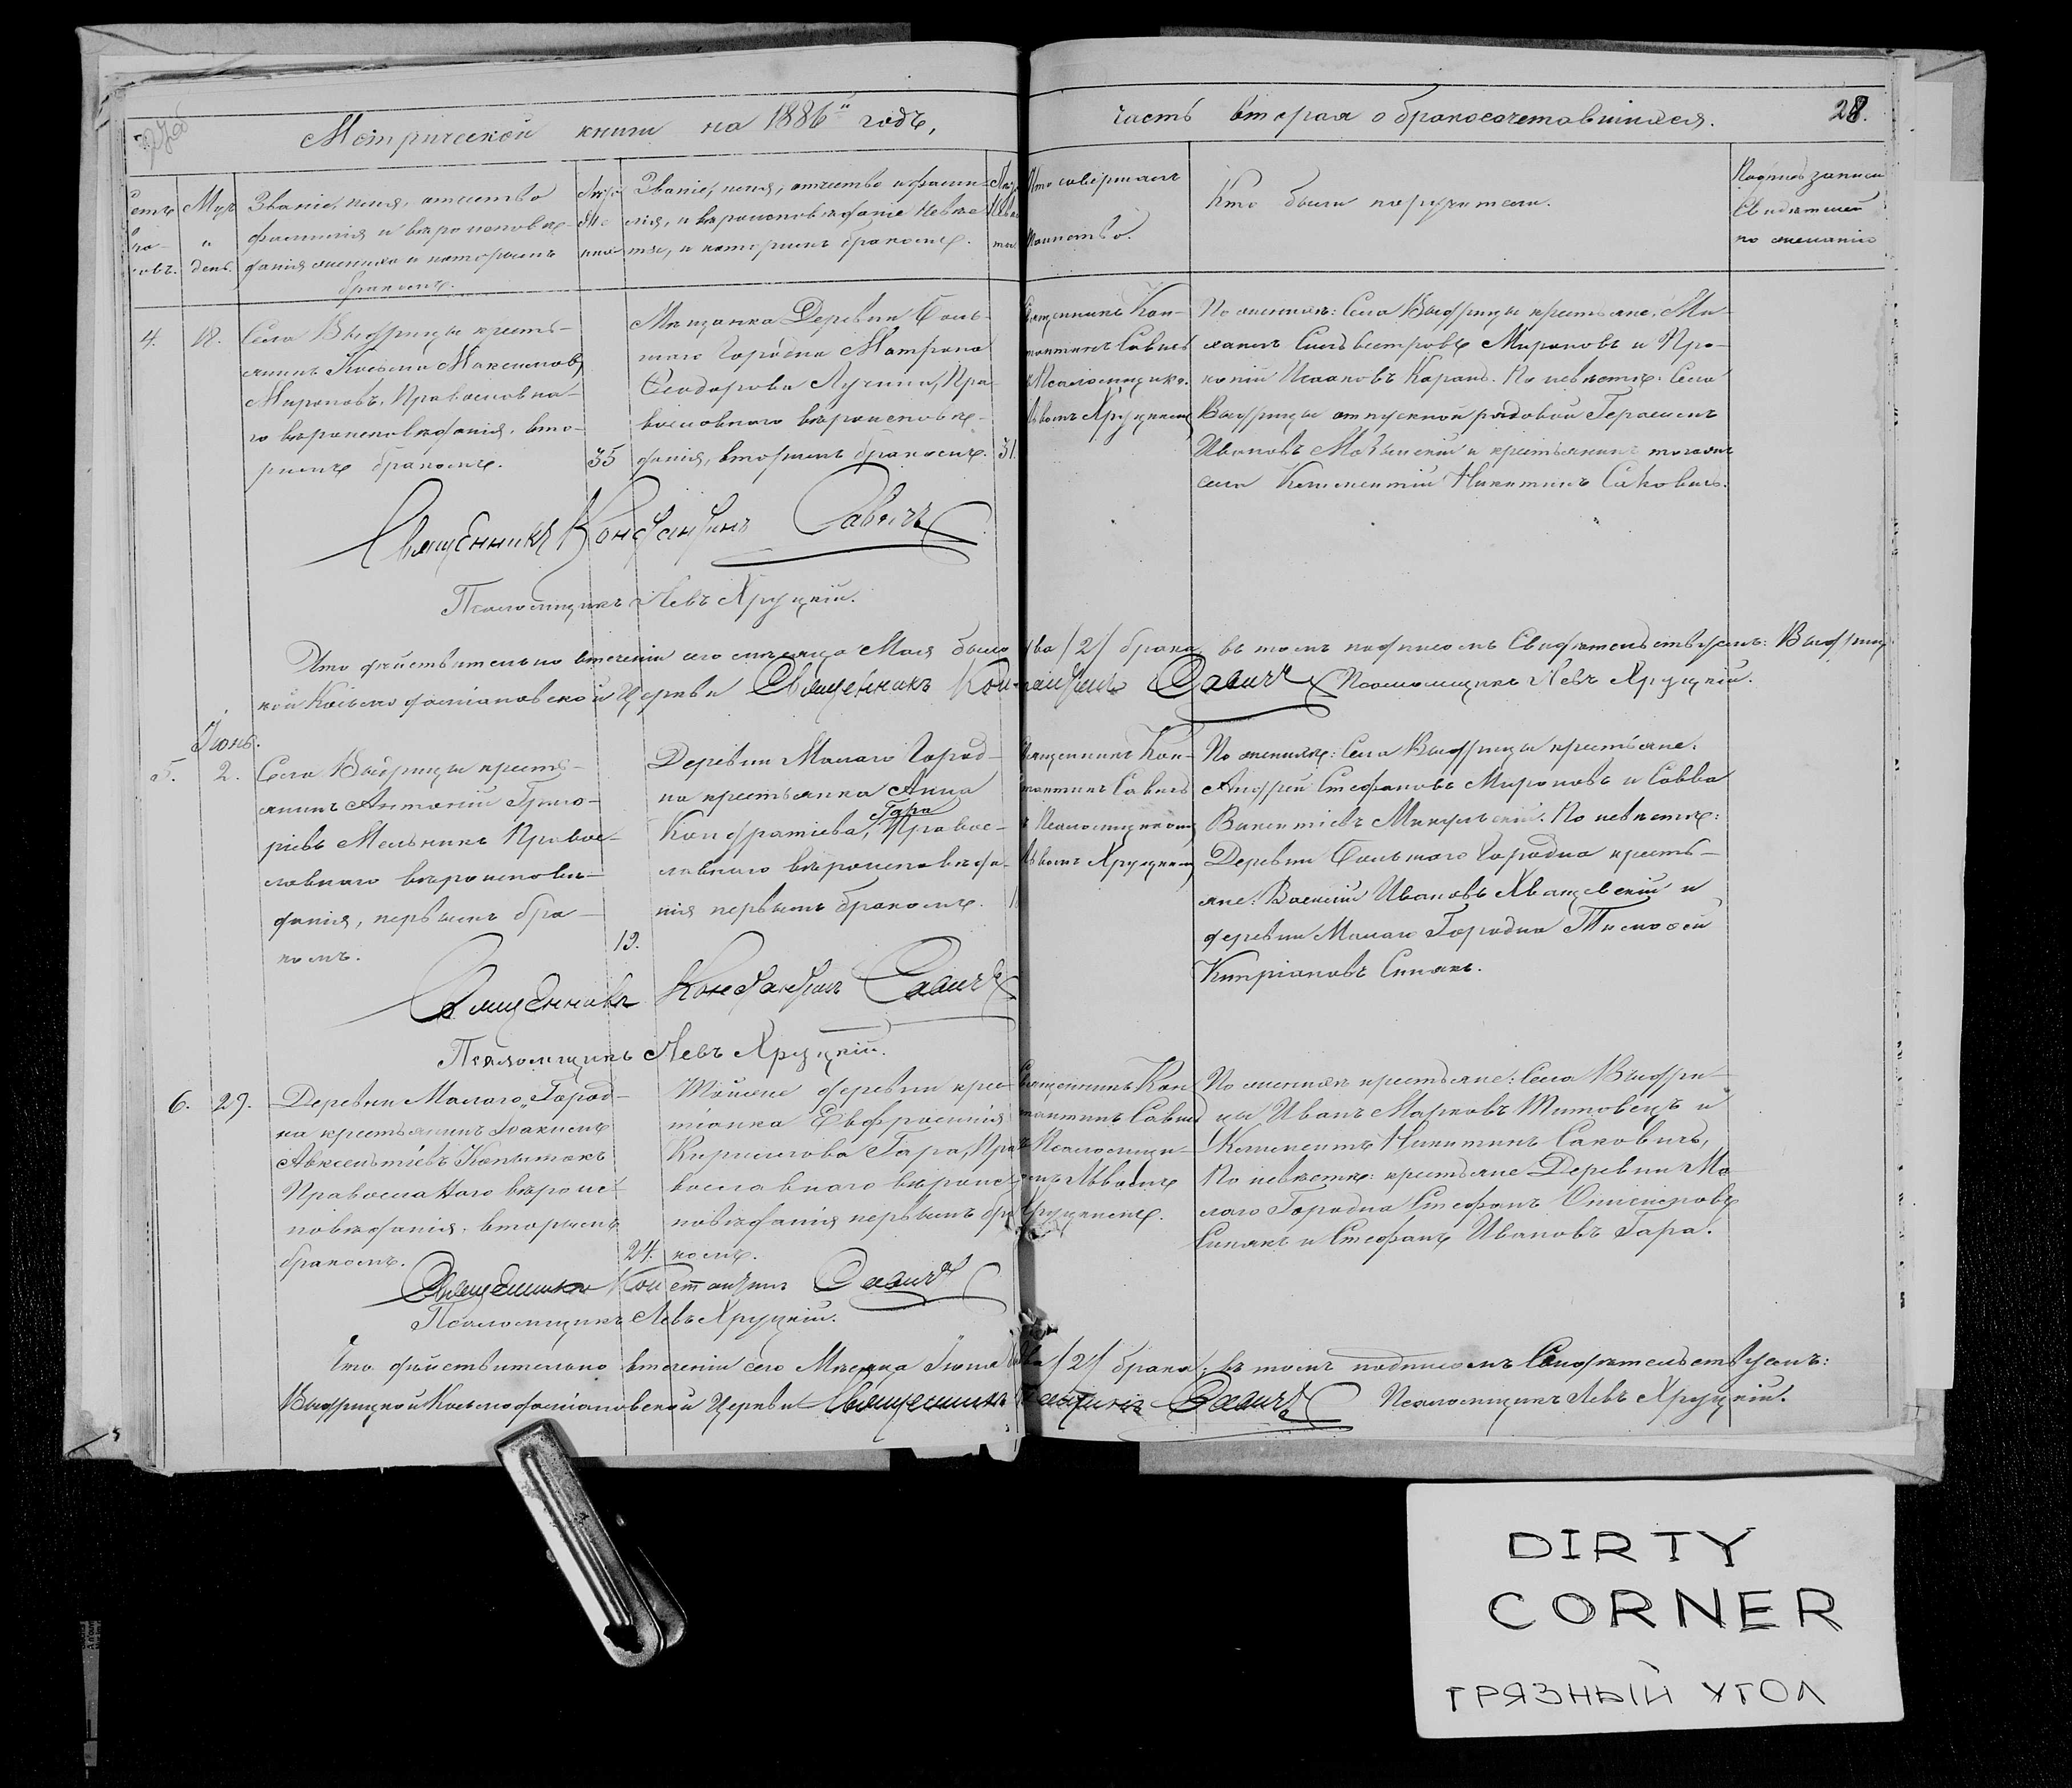 Метрической книги на 1886й годъ,
часть вторая о бракосочетавшихся. 28.
Счетъ бра- ковъ.
Мца и день.
Званіе, имя, отчество
фамилія и вѣроисповѣ-
данія жениха и которымъ
бракомъ.
Званіе, имя, отчество и фами-
лія, и вѣроисповѣданіе невѣс-
ты, и которымъ бракомъ.
Кто совершалъ
таинство.
Кто были поручители.
Подпись записи
Свидѣтелей
по желанію
4. 18.
Села Выдрицы кресть-
янинъ Косьма Максимовъ
Мироновъ, Православна-
го вѣроисповѣданія, вто-
рымъ бракомъ. 35
Мѣщанка Деревни Боль-
шаго Городна Матрона
Ѳеодорова Лучина, Пра-
вославнаго вѣроисповѣ-
данія, вторымъ бракомъ. 31.
Священникъ Кон-
стантинъ Савичъ
Псаломщико.
Львомъ Хруцкимъ
По женихѣ: Села Выдрицы крестьяне, Ми-
хаилъ Сильвестровъ Мироновъ и Про-
копій Исааковъ Карань. По невѣстѣ: Села
Выдрицы отпускной рядовой Герасимъ
Ивановъ и крестьянинъ тогожъ
села Климентій Никитинъ Саковичъ.
Священникъ Константинъ Савичъ
Псаломщикъ Левъ Хруцкій.
Что дѣйствительно втеченіи сего мѣсяца Мая было два /2/ брака, въ томъ подписомъ Свидѣтельствуемъ: Выдриц
кой Косьмодаміановской Церкви Священникъ Константинъ Савичъ Псаломщикъ Левъ Хруцкій.
Іюнь.
5. 2.
Села Выдрицы кресть-
янинъ Антоній Григо-
ріевъ Мельникъ Правос-
лавнаго вѣроисповѣ-
данія, первымъ бра-
комъ. 19.
Деревни Малаго Город-
на крестьянка Анна
Гара
Кондратіева, Правос-
лавнаго вѣроисповѣда-
нія первымъ бракомъ.
Священникъ Кон-
стантинъ Савичъ
и Псаломщикомъ
Львомъ Хруцкимъ
По женихѣ: Села Выдрицы крестьяне.
Андрей Стефановъ Мироновъ и Савва
Викентіевъ Микульскій. По невѣстѣ:
Деревни Большаго Городна кресть-
яне: Василій Ивановъ Хващевскій и
деревни Малаго Городна Тимоѳей
Кипріановъ Синякъ.
Священникъ Константинъ Савичъ
Псаломщикъ Левъ Хруцкій.
6. 29.
Деревни Малаго Город-
на крестьянинъ Іоакимъ
Авксентіевъ Капитанъ
Православного вѣроис-
повѣданія, вторымъ
бракомъ. 24.
Тойже деревни крес-
тіанка Евфросинія
Кирилова Гара, Пра-
вославнаго вѣроис-
повѣданія первымъ бра-
комъ.
Священникъ Кон
стантинъ Савичъ
и Псаломщи-
комъ Львомъ
Хруцкимъ.
По женихѣ крестьяне: Села Выдри-
цы Иванъ Марковъ Титовецъ и
Климентъ Никитинъ Саковичъ,
По невѣстѣ: крестьяне Деревни Ма-
лаго Городна Стефанъ Онисимовъ
Синякъ и Стефанъ Ивановъ Гара.
Священникъ Константинъ Савичъ
Псаломщикъ Левъ Хруцкій.
Что дѣйствительно втеченіи сего Мѣсяца Іюня два /2/ брака, въ томъ подписомъ Свидѣтельствуемъ:
Выдрицкой Косьмодаміановской Церкви Священникъ Константинъ Савичъ Псаломщикъ Левъ Хруцкій.
DIRTY
CORNER
ГРЯЗНЫЙ УГОЛ